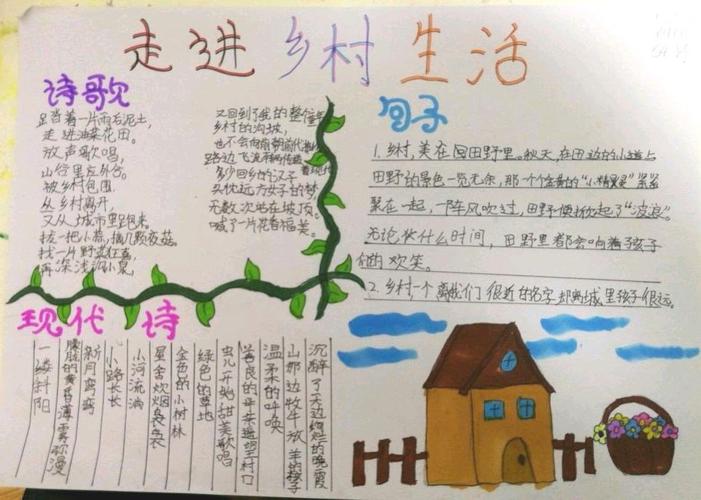 走进乡村生活
诗歌
足踏着一片雨后泥土,
走进油菜花田。
放声歌唱,
山行里左外谷。
被乡村包围
从乡村离开,
又从城市里跑来。
拔一把小蒜,摘几颗夜菇。
找一片野
再深浅
又回到了我的整个
乡村的沟坡,
也不会向
路边飞流
多少回乡的汉子
头枕远方女子的梦
无数次站在坡顶。
喊了一片花香福美。
句子
1.乡村,美在田野里。秋天,在田边的小道上
田野的景色一览无余,那一个个金黄的“小精灵”紧紧
聚在一起,一阵风吹过,田野便掀起了“波浪”。
无论什么时间,田野里都会响着孩子
们的欢笑。
2、乡村一个离我们很近的名字却离城里孩子很远。
现代诗
沉醉了天边绚烂的晚霞
山那边牧牛放羊的孩子
温柔的呼唤
善良的母亲走进村口
虫儿开始甜美歌唱
绿色的草地
金色的小树林
屋舍炊烟袅袅
小河流淌
小路长长
新月弯弯
朦胧的黄昏薄雾弥漫
一缕斜阳